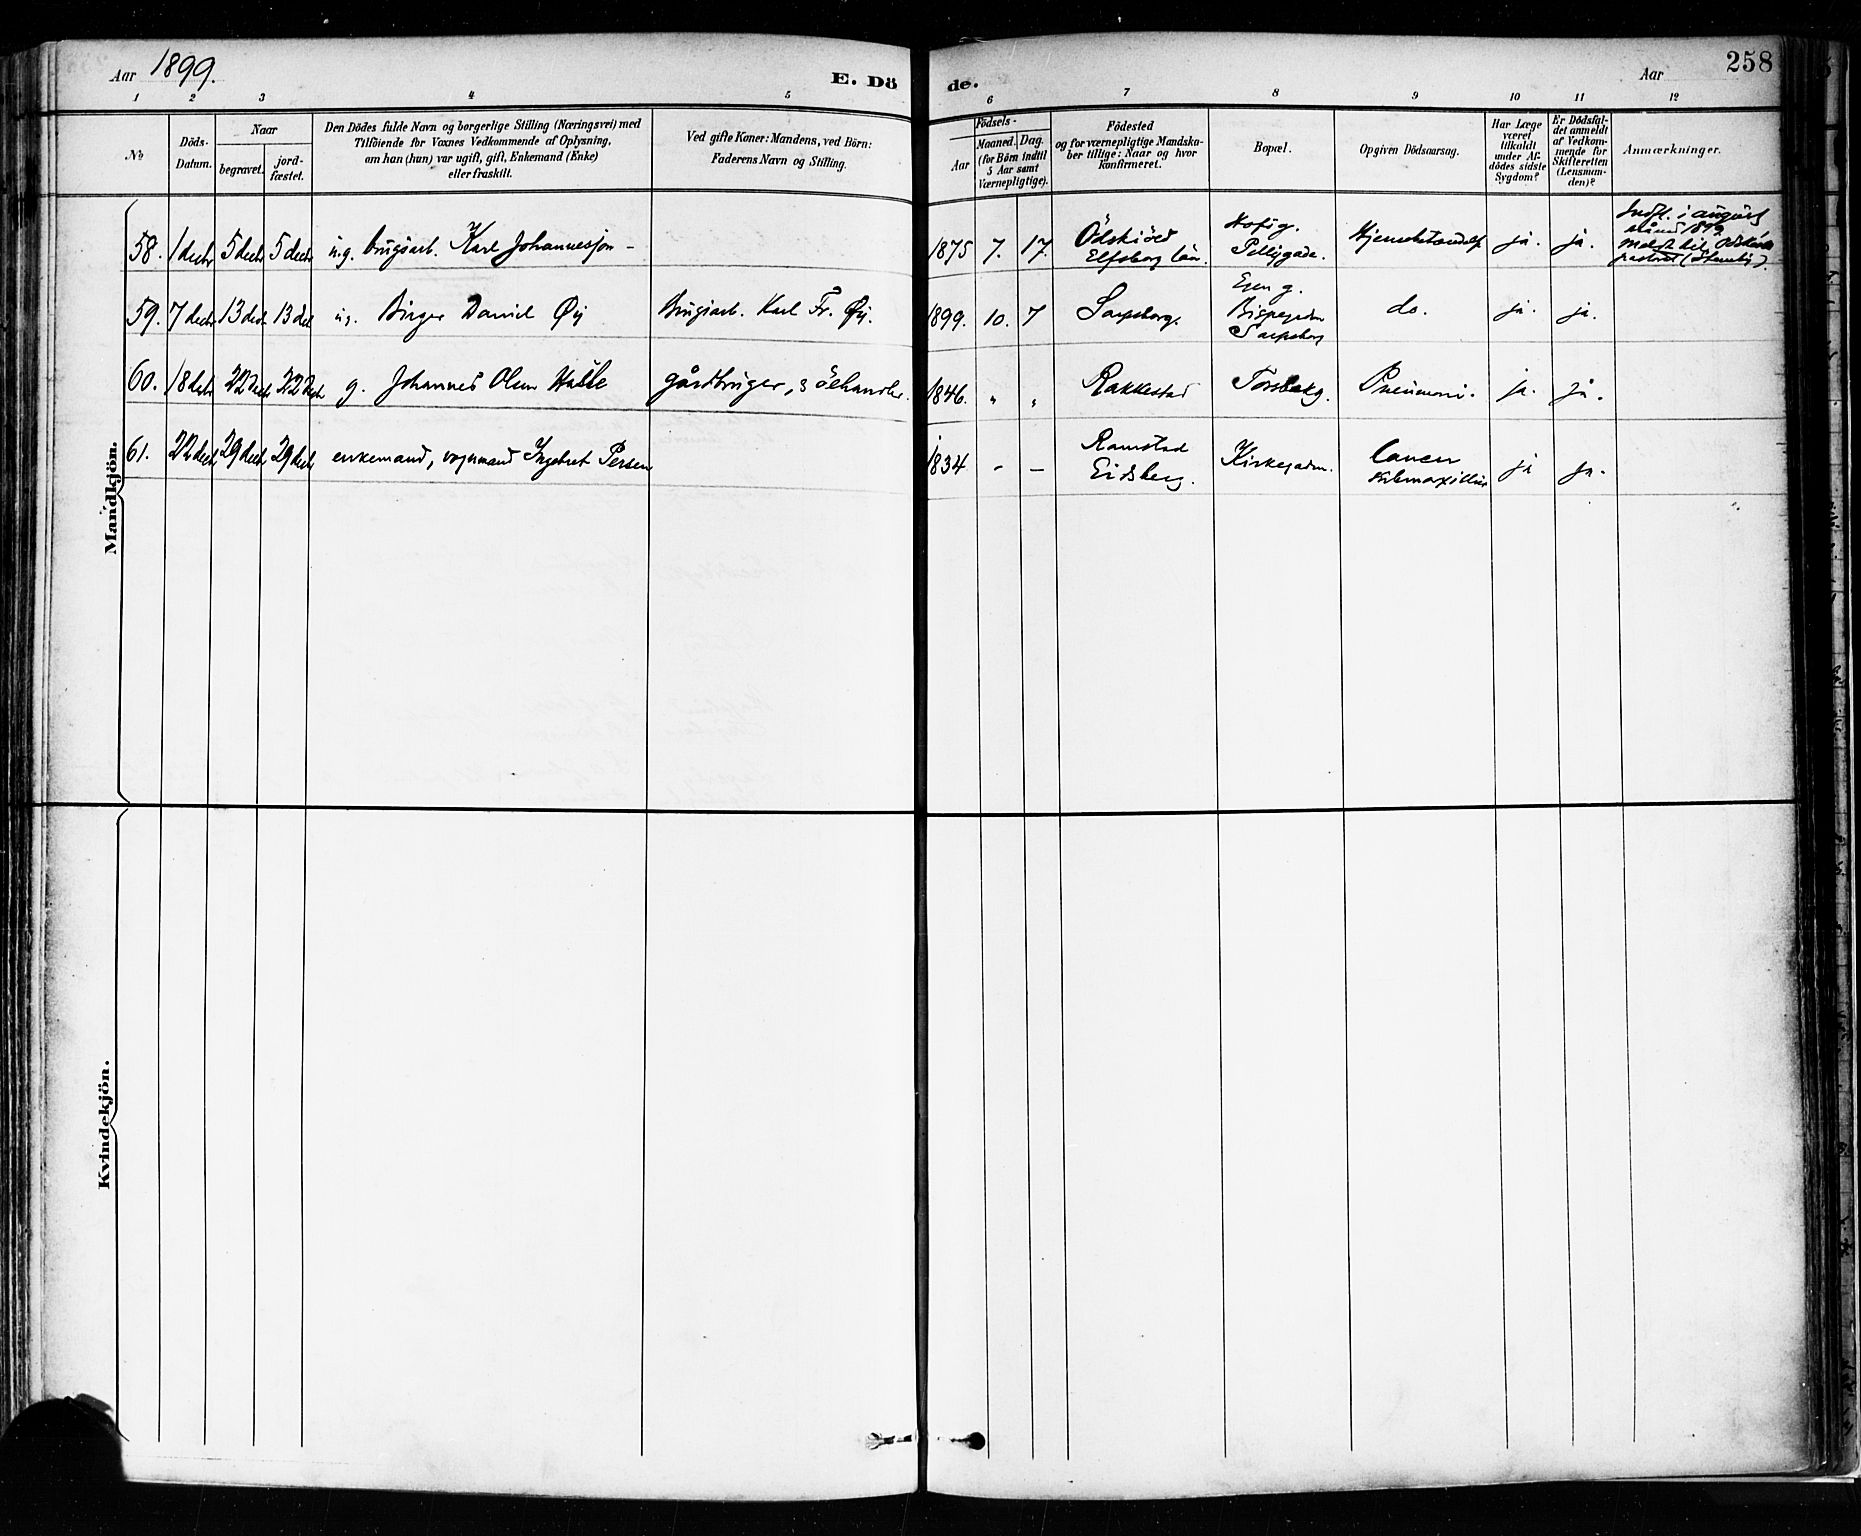 Aar 1899.
E. Dö
de.
Aar
258
1 2 3 4 5 6 7 8 9 10 11 12
No
Döds-
Datum.
Naar
begravet.
jord-
fæstet.
Den Dödes fulde Navn og borgerlige Stilling (Næringsvei) med
Tilföiende for Voxnes Vedkommende af Oplysning,
om han (hun) var ugift, gift, Enkemand (Enke)
eller fraskilt.
Ved gifte Koner: Mandens, ved Börn:
Faderens Navn og Stilling.
Födsels-
Aar
Maaned.
Dag.
(for Börn indtil
5 Aar samt
Værnepligtige).
Födested
og for værnepligtige Mandska-
ber tillige: Naar og hvor
konfirmeret.
Bopæl.
Opgiven Dödsaarsag.
Har Læge
været
tilkaldt
under Af-
dödes sidste
Sygdom?
Er Dödsfal-
det anmeldt
af Vedkom-
mende for
Skifteretten
(Lensman-
den)?
Anmærkninger.
Mandkjön.
58. 1 decbr 5 decbr 5 decbr u.g. brugsarb. Karl Johannesson - 1875 7. 17. Ödskiöld Elfsborg län. ja. ja. Indfl. i august
59. 7 decbr 13 decbr 13 dec u.g. Birger Daniel Øy Brugsarb. Karl Fr. Øy. 1899. 10. 7 Sarpsborg. Sarpsborg do. ja. ja.
60. 18 decbr 22 decbr 22 decbr g. Johannes Olsen gårdbruger, 1846. " " Rakkestad Torsbekg. Pneumoni. ja. ja.
61. 22 decbr 29 decbr 29 decbr enkemand, vognmand Ingebret Persen 1834 - - Ramstad Eidsberg. Kirkegadn. Cancer submaxillar ja ja.
Kvindekjön.